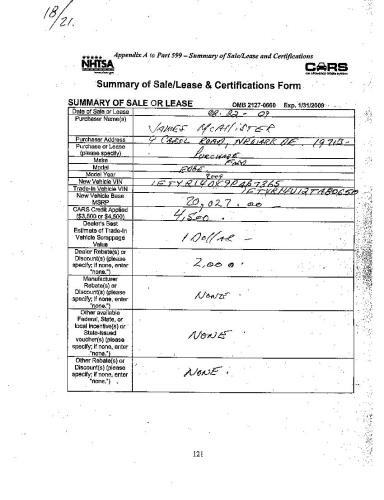 18/21.
Appendix A to Part 599 – Summary of Sale/Lease and Certifications
NHTSA
www.nhtsa.gov
CARS
Summary of Sale/Lease & Certifications Form
SUMMARY OF SALE OR LEASE OMB 2127-0660 Exp. 1/31/2009
Date of Sale or Lease 08-22-09
Purchaser Name(s)
JAMES McALLISTER
Purchaser Address 4 CAROL ROAD, NEWARK DE. 19713-
Purchase or Lease
(please specify) PURCHASE
Make FORD
Model EDGE
Model Year 2009
New Vehicle VIN
Trade-In Vehicle VIN
New Vehicle Base
MSRP 20,027.00
CARS Credit Applied
($3,500 or $4,500) 4,500.
Dealer's Best
Estimate of Trade-In
Vehicle Scrappage
Value 1 Dollar –
Dealer Rebate(s) or
Discount(s) (please
specify; if none, enter
"none.") 2,000.
Manufacturer
Rebate(s) or
Discount(s) (please
specify; if none, enter
"none.") NONE.
Other available
Federal, State, or
local incentive(s) or
State-Issued
voucher(s) (please
specify; if none, enter
"none.") NONE
Other Rebate(s) or
Discount(s) (please
specify; if none, enter
"none.") NONE.
121